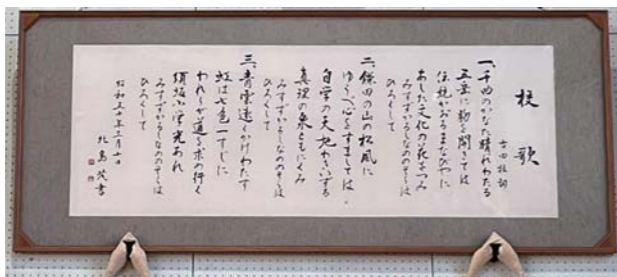 校歌
吉田 作詞
一、千曲のかなた晴れわたる
五峯に動を聞きては
伝統かおるまなびやに
あした文化の花をつみ
みすずかるしなののそらは
ひろくして
二、鎌田の山の松風に
ゆうべ心をすましては
自学の天地わきいずる
真理の泉ともにくみ
みすずかるしなののそらは
ひろくして
三、青雲遠くかけわたす
虹は七色一すじに
われらが道を求め行く
須坂小学光あれ
みすずかるしなののそらは
ひろくして
昭和五十年三月十日
北島茂書